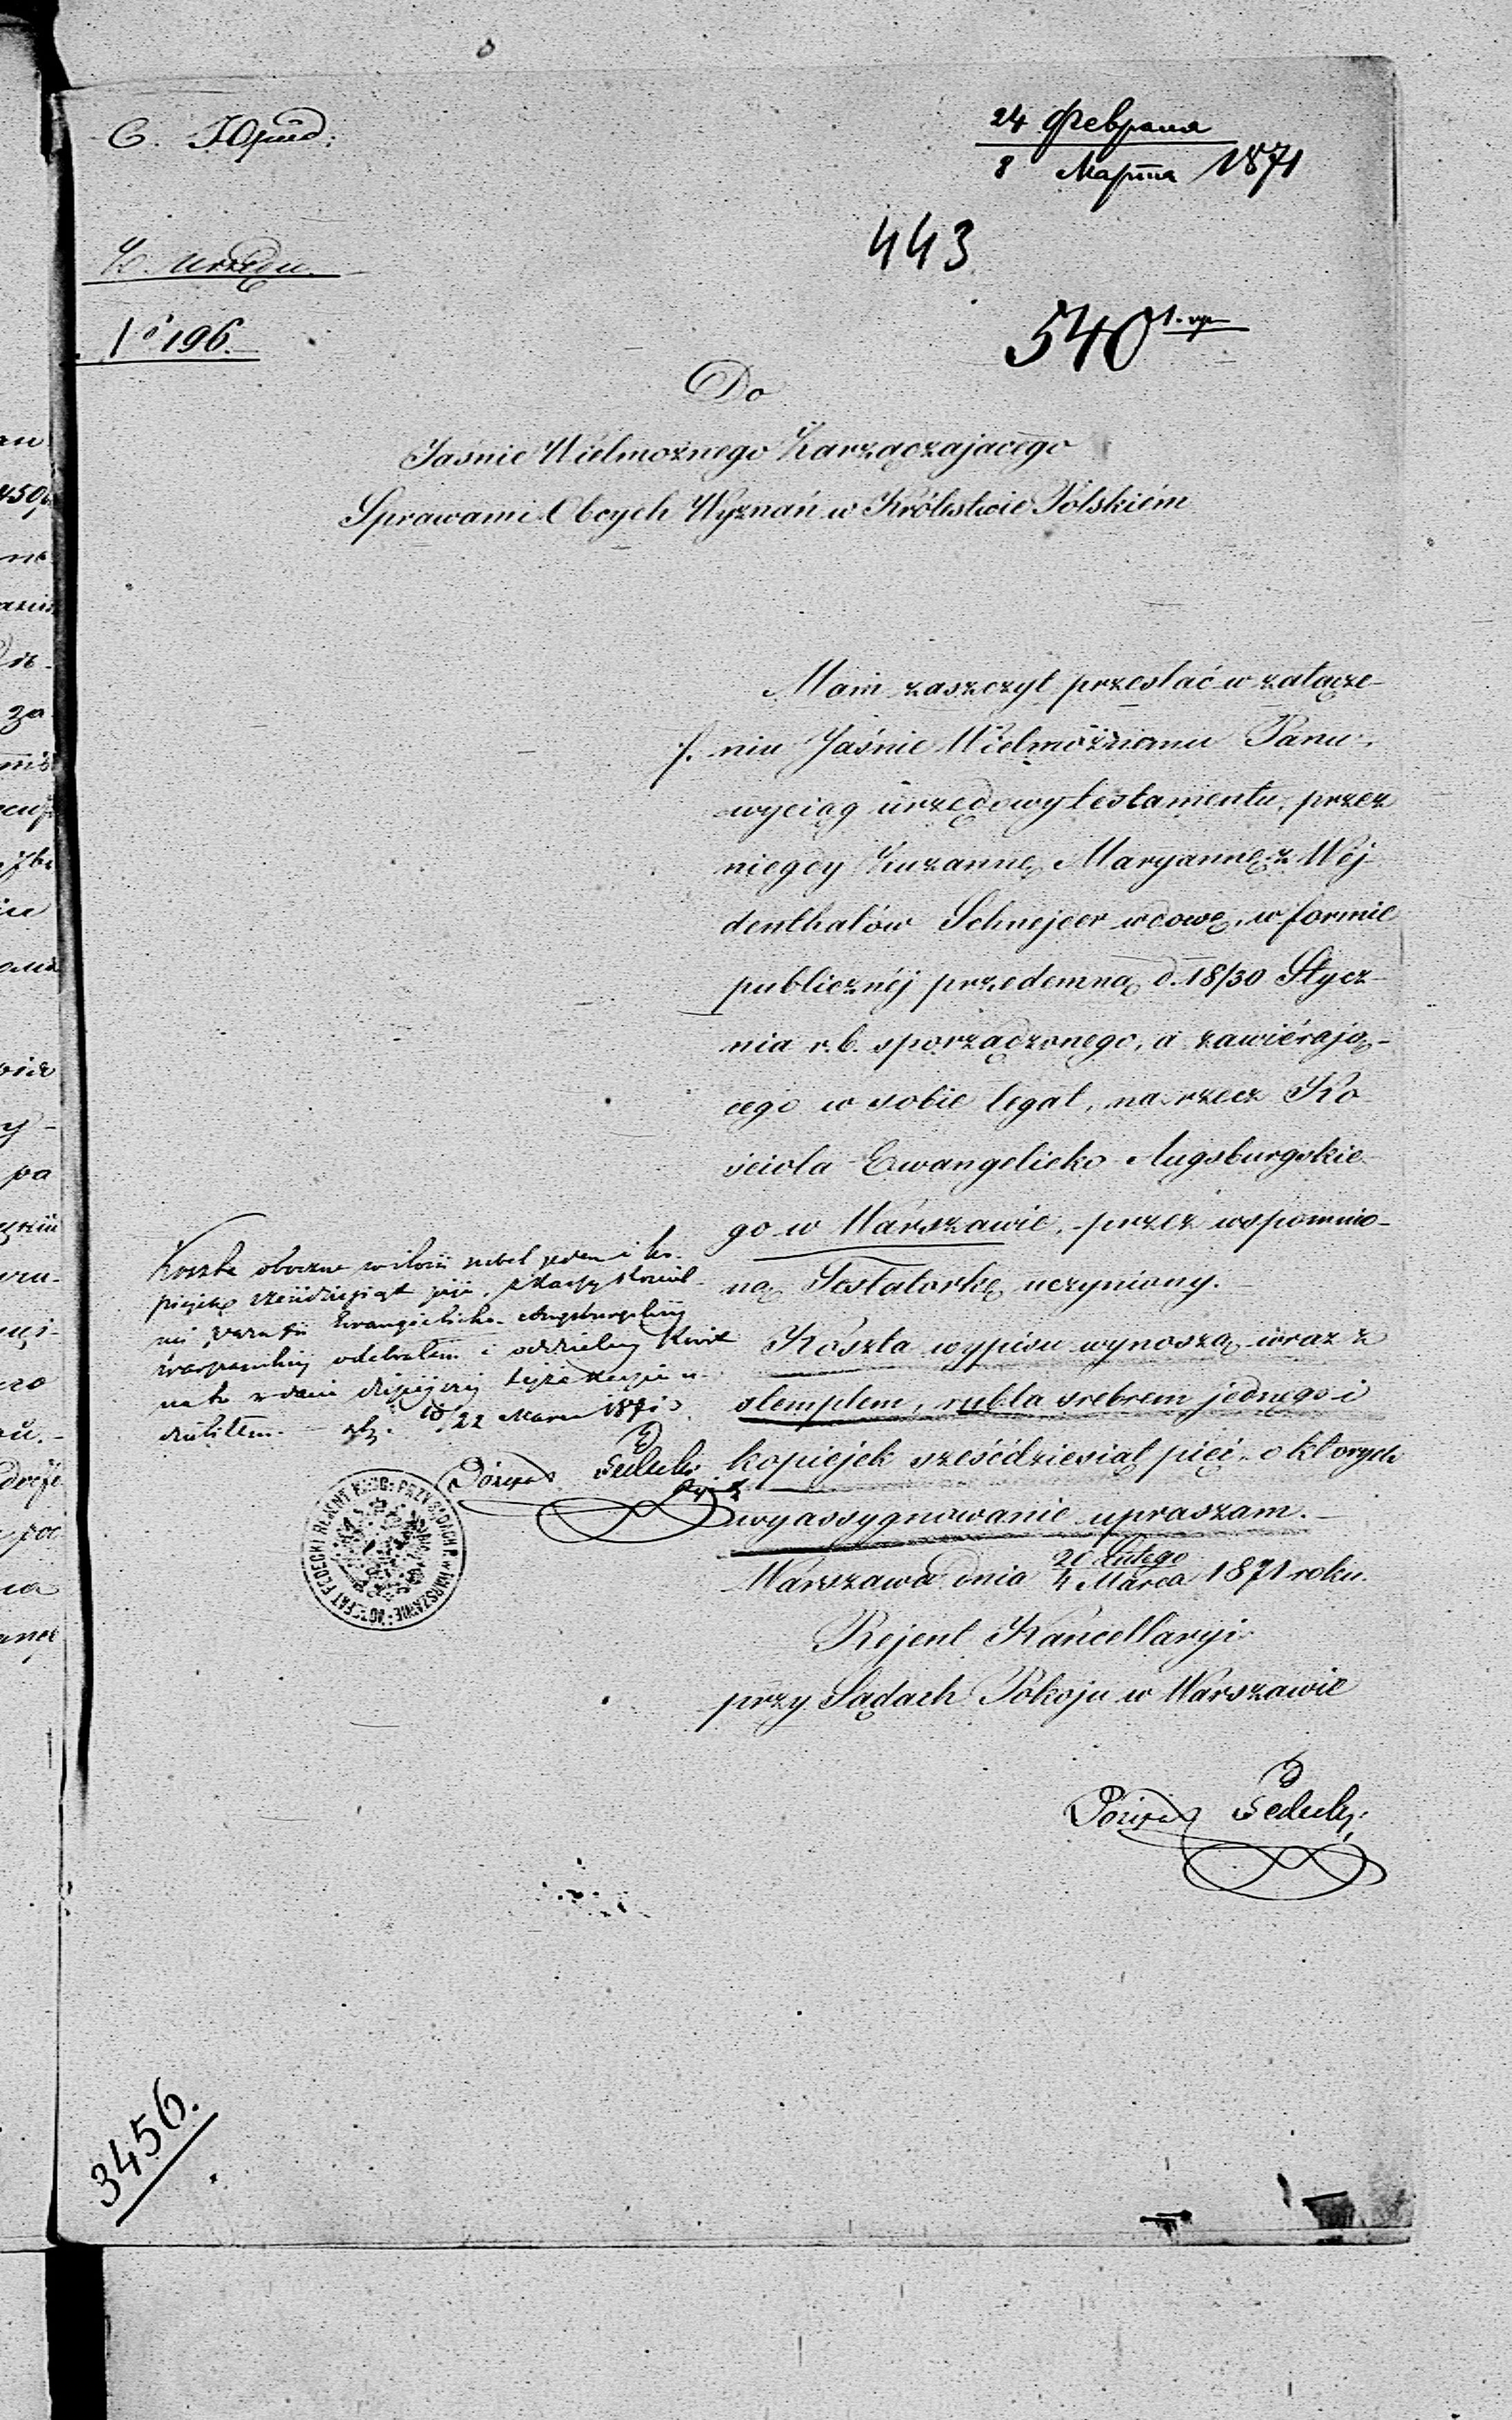 С. Юрид:
24 Февраля
8 Марта 1871
443
Z. Urzędu.
No 196.
540
Do
Jaśnie Wielmożnego Zarządzającego
Sprawami Obcych Wyznań w Królestwie Polskiém
Mam zaszczyt przesłać w załącze-
niu Jaśnie Wielmożnemu Panu,
wyciąg urzędowy testamentu, przez
niegdy Zuzannę Maryannę z Wej
denthalów Schnejder wdowę, w formie
publicznéj przedemną d. 18/30 Stycz-
nia r.b. sporządzonego, a zawiérają-
cego w sobie legat, na rzecz Ko
ścioła Ewangelicko Augsburgskie-
go w Warszawie, przez wspomnio-
ną Testatorkę uczyniony.
Koszta wypisu wynoszą wraz z
stemplem, rubla srebrem jednego i
kopiejek sześćdziesiąt pięć, o których
wyassygnowanie upraszam.
Warszawa dnia 20 Lutego
4 Marca 1871 roku.
Rejent Kancellaryi
przy Sądach Pokoju w Warszawie
Koszta oboczne w ilości rubel jeden i ko-
piejek sześćdziesiąt pięć, z Kassy
Ewangelicko-Augsburgskiéj
Warszawskiéj odebrałem i oddzielny Kwit
na to w dniu dzisiejszym
22 Marca 1871
3456.